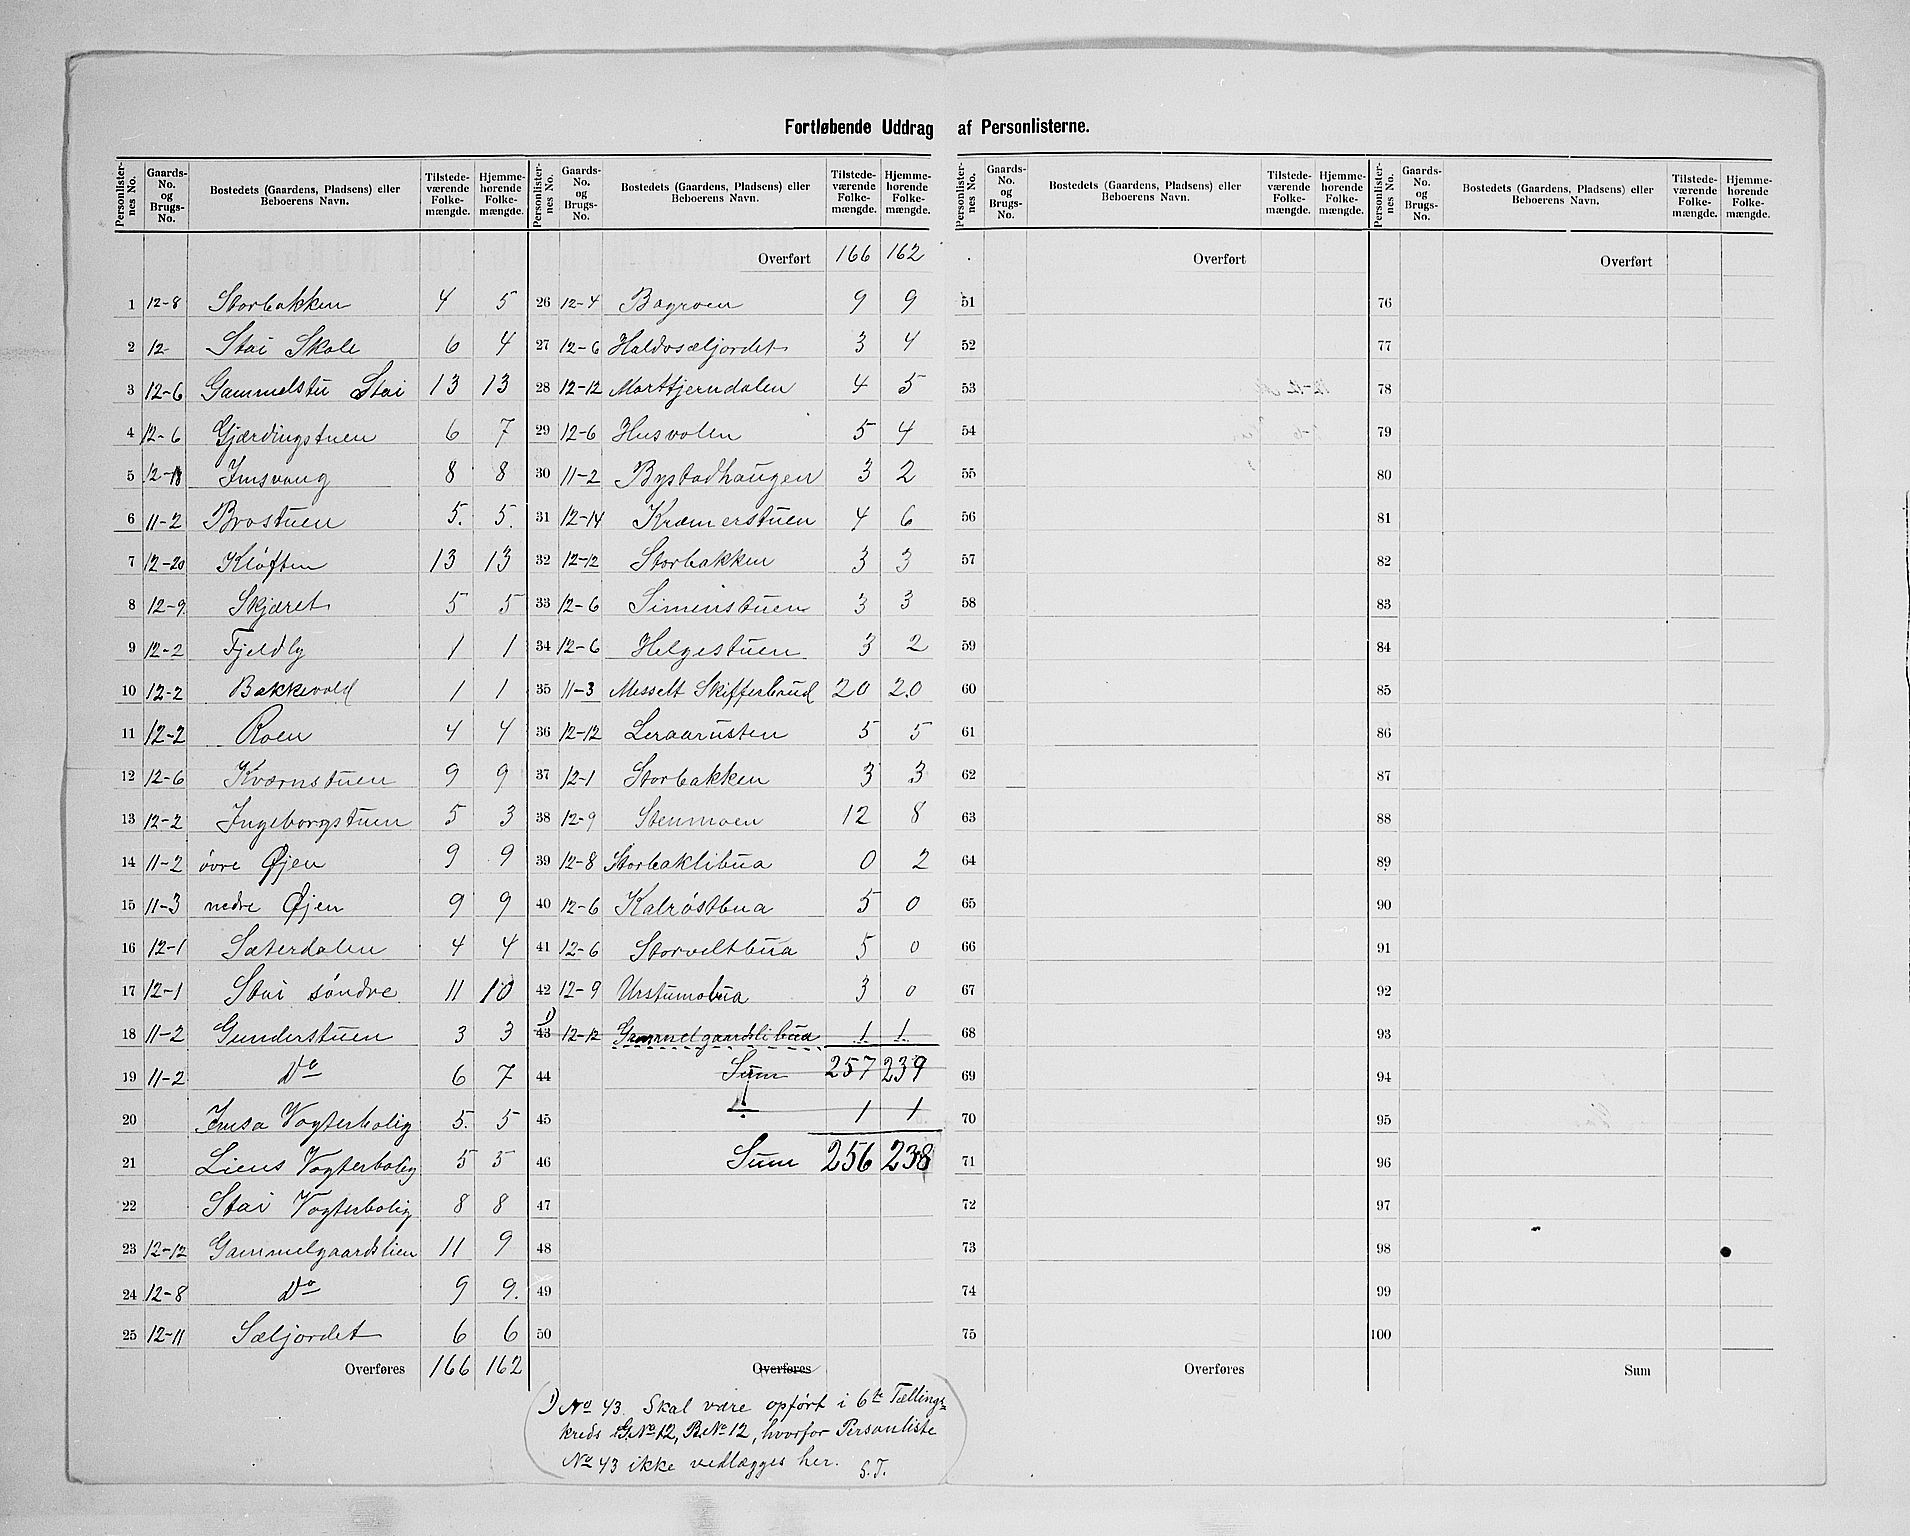 Fortløbende Uddrag af Personlisterne.
Personlister-nes No. | Gaards-No. og Brugs-No. | Bostedets (Gaardens, Pladsens) eller Beboerens Navn. | Tilstede-værende Folke-mængde. | Hjemme-hørende Folke-mængde.
1 12-8 Storbakken 4 5
2 12- Stai Skole 6 4
3 12-6 Gammelstu Stai 13 13
4 12-6 Gjærdingstuen 6 7
5 12-18 Imsvang 8 8
6 11-2 Brostuen 5. 5.
7 12-20 Kløften 13 13
8 12-9. Skjæret 5 5
9 12-2 Fjeldly 1 1
10 12-2 Bakkevold 1 1
11 12-2 Roen 4 4
12 12-6 Kværnstuen 9 9
13 12-2 Ingeborgstuen 5 3
14 11-2 øvre Øjen 9 9
15 11-3 nedre Øjen 9 9
16 12-1 Sæterdalen 4 4
17 12-1 Stai søndre 11 10
18 11-2 Gunderstuen 3 3
19 11-2 Do 6 7
20 Imsa Vogterbolig 5. 5
21 Liens Vogterbolig 5 5
22 Stai Vogterbolig 8 8
23 12-12 Gammelgaardslien 11 9
24 12-8 Do 9 9.
25 12-11 Sæljordet 6 6
Overføres 166 162
Personlister-nes No. | Gaards-No. og Brugs-No. | Bostedets (Gaardens, Pladsens) eller Beboerens Navn. | Tilstede-værende Folke-mængde. | Hjemme-hørende Folke-mængde.
Overført 166 162
26 12-4 Bagroen 9 9
27 12-6 Haldosæljordet 3 4
28 12-12 Morttjerndalen 4 5
29 12-6 Husvolen 5 4
30 11-2 Bystadhaugen 3 2
31 12-14 Kræmerstuen 4 6
32 12-12 Storbakken 3 3
33 12-6 Simenstuen 3 3
34 12-6 Helgestuen 3 2
35 11-3 Messelt Skifferbrud 20 20
36 12-12 Leraarusten 5 5
37 12-1 Storbakken 3 3
38 12-9 Stenmoen 12 8
39 12-8 Storbaklibua 0 2
40 12-6 Kalrøstbua 5 0
41 12-6 Storveltbua 5 0
42 12-9 Urstumobua 3 0
1) 43 12-12 Gammelgaardslibua 1 1.
44 Sum 257 239
45 1 1
46 Sum 256 238
47
48
49
50
Overføres
1) No 43. Skal være opført i 6te Tællings-
kreds G.No 12, B.No 12, hvorfor Personliste
No 43 ikke vedlægges her. S.T.
Personlister-nes No. | Gaards-No. og Brugs-No. | Bostedets (Gaardens, Pladsens) eller Beboerens Navn. | Tilstede-værende Folke-mængde. | Hjemme-hørende Folke-mængde.
Overført
51
52
53
54
55
56
57
58
59
60
61
62
63
64
65
66
67
68
69
70
71
72
73
74
75
Overføres
Personlister-nes No. | Gaards-No. og Brugs-No. | Bostedets (Gaardens, Pladsens) eller Beboerens Navn. | Tilstede-værende Folke-mængde. | Hjemme-hørende Folke-mængde.
Overført
76
77
78
79
80
81
82
83
84
85
86
87
88
89
90
91
92
93
94
95
96
97
98
99
100
Sum